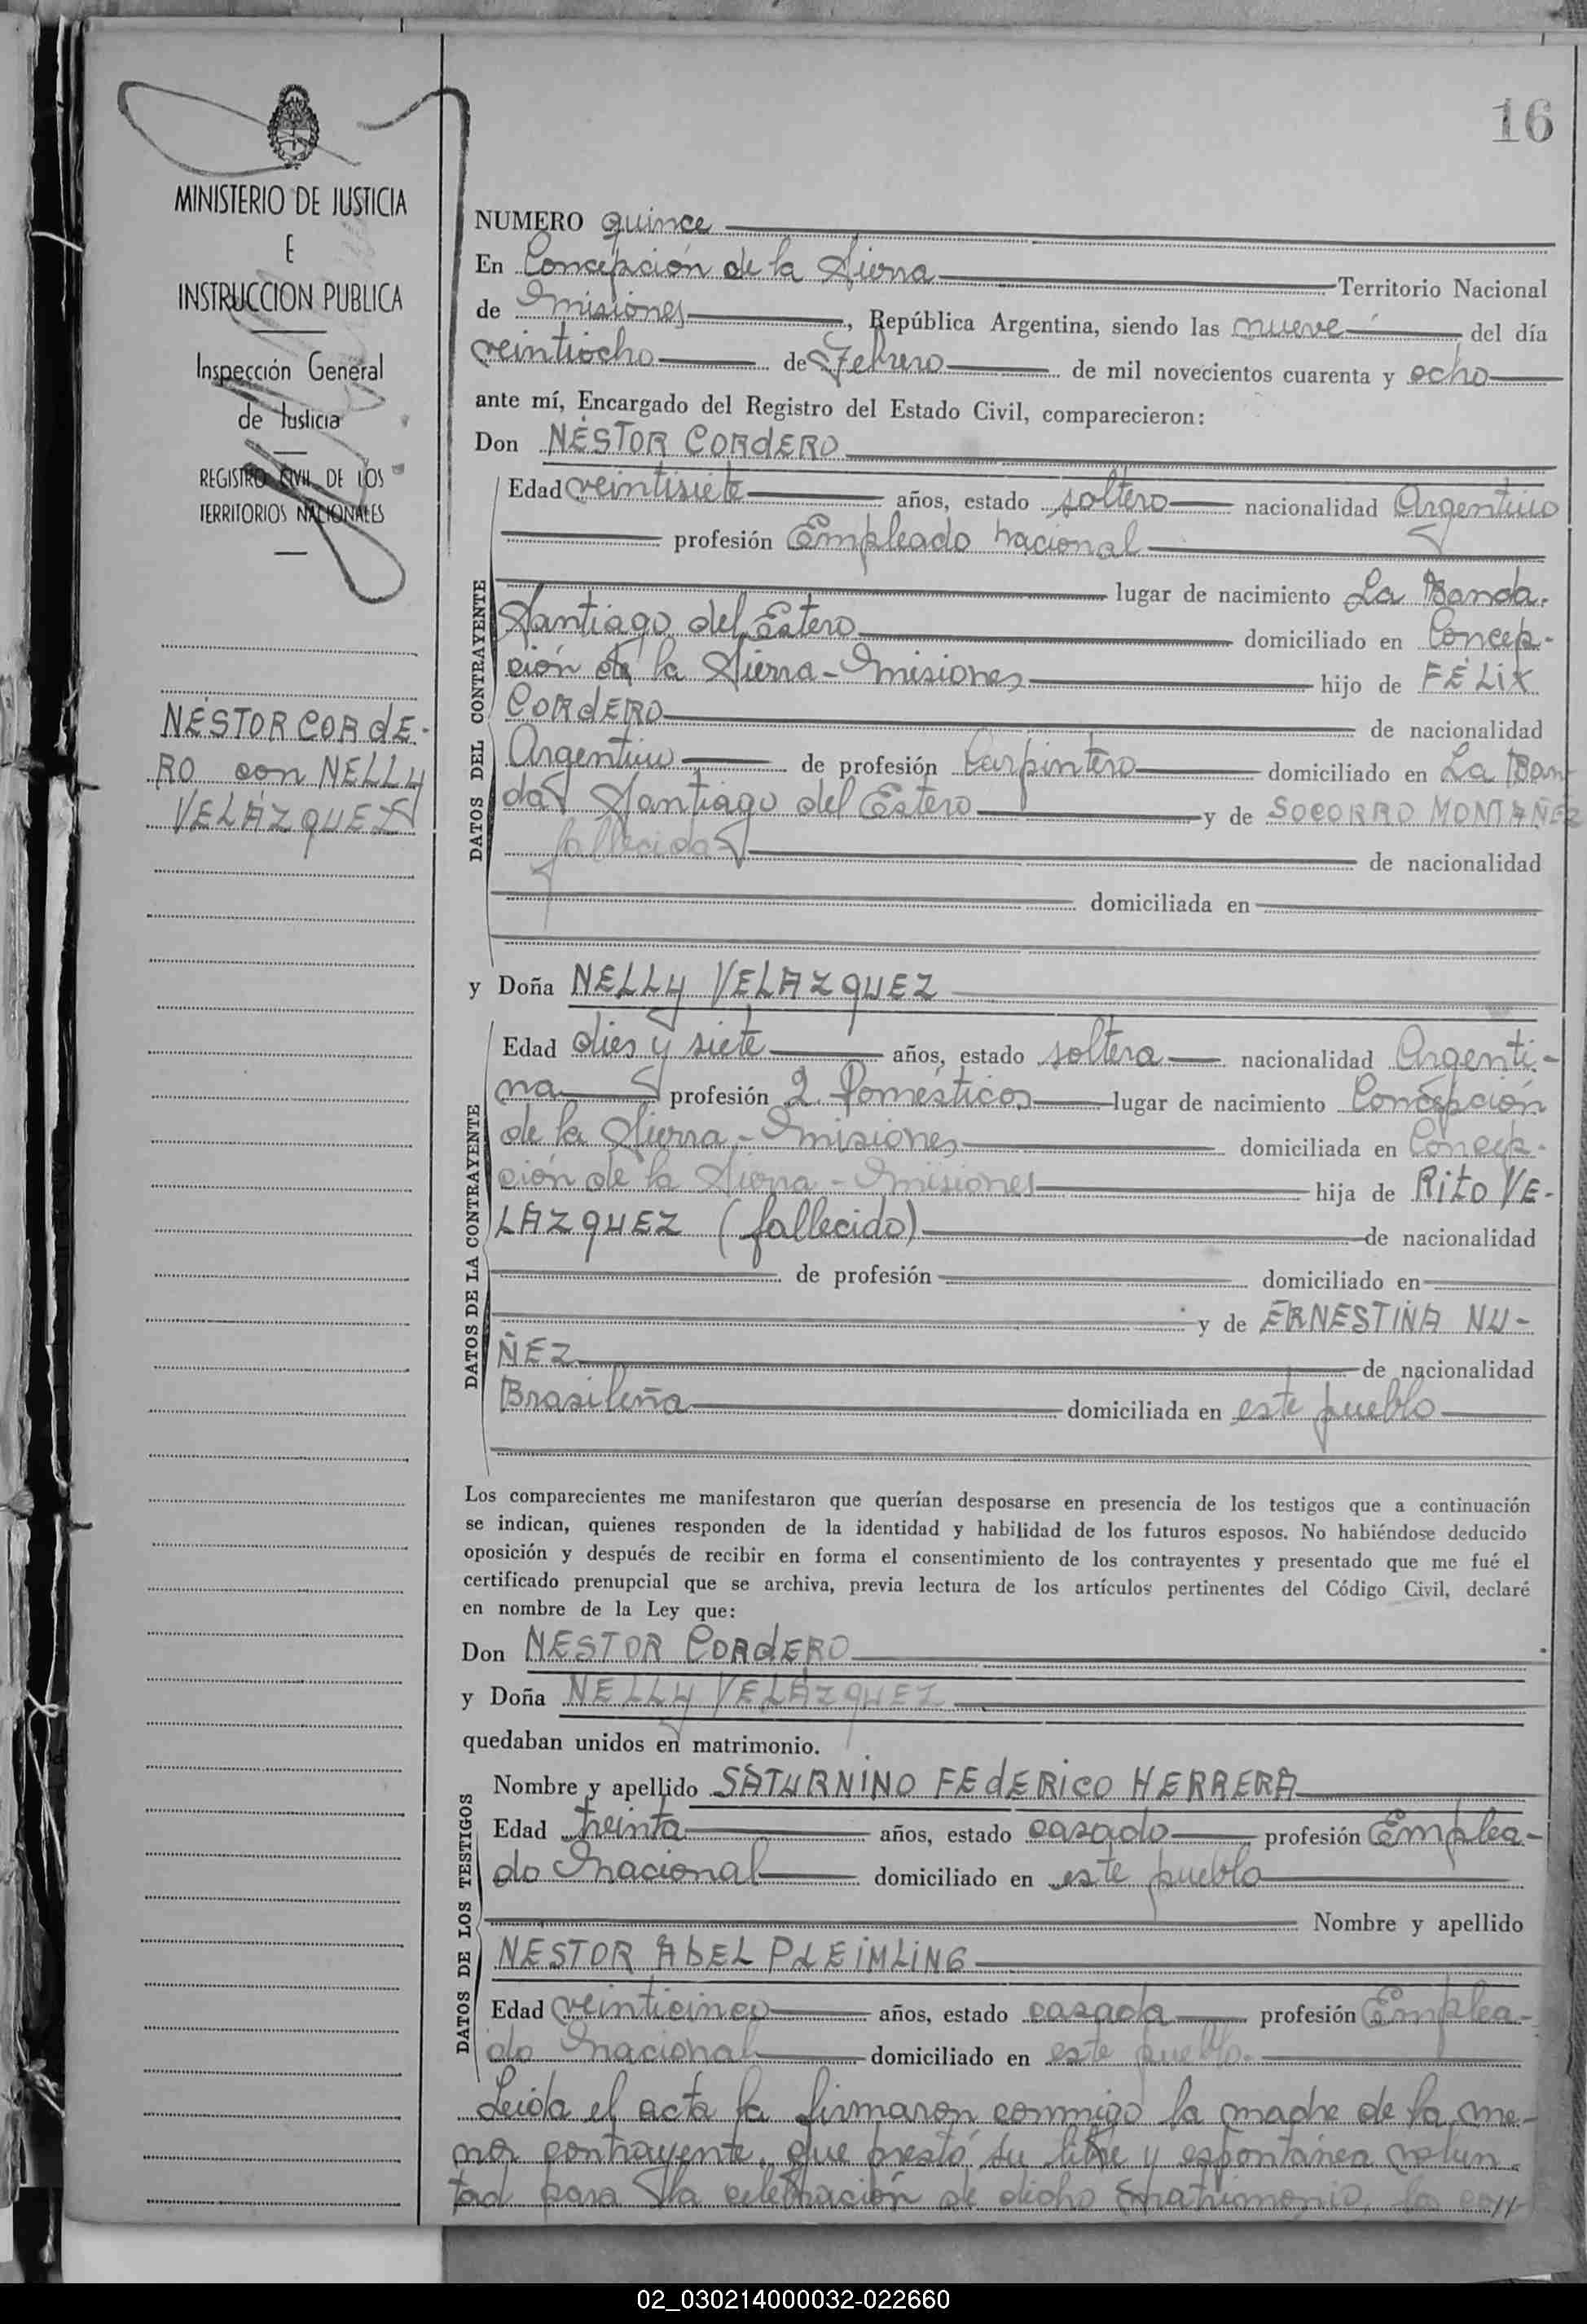 16
MINISTERIO DE JUSTICIA
E
INSTRUCCION PUBLICA
Inspección General
de Justicia
REGISTRO CIVIL DE LOS
TERRITORIOS NACIONALES
NÉSTOR CORDE-
RO con NELLY
VELÁZQUEZ
NUMERO quince
En Concepción de la Sierra Territorio Nacional
de Misiones, República Argentina, siendo las nueve del día
veintiocho de Febrero de mil novecientos cuarenta y ocho
ante mí, Encargado del Registro del Estado Civil, comparecieron:
Don NÉSTOR CORDERO
DATOS DEL CONTRAYENTE
Edad veintisiete años, estado soltero nacionalidad Argentino
profesión Empleado Nacional
lugar de nacimiento La Banda.
Santiago del Estero domiciliado en Concep-
ción de la Sierra - Misiones hijo de FÉLIX
CORDERO de nacionalidad
Argentino de profesión Carpintero domiciliado en La Ban
da Santiago del Estero y de SOCORRO MONTAÑEZ
fallecida de nacionalidad
domiciliada en
y Doña NELLY VELAZQUEZ
DATOS DE LA CONTRAYENTE
Edad dies y siete años, estado soltera nacionalidad Argenti-
na profesión Q. Domésticos lugar de nacimiento Concepción
de la Sierra - Misiones domiciliada en Concep-
ción de la Sierra - Misiones hija de RITO VE-
LAZQUEZ (fallecido) de nacionalidad
de profesión domiciliado en
y de ERNESTINA NU-
ÑEZ de nacionalidad
Brasileña domiciliada en este pueblo
Los comparecientes me manifestaron que querían desposarse en presencia de los testigos que a continuación
se indican, quienes responden de la identidad y habilidad de los futuros esposos. No habiéndose deducido
oposición y después de recibir en forma el consentimiento de los contrayentes y presentado que me fué el
certificado prenupcial que se archiva, previa lectura de los artículos pertinentes del Código Civil, declaré
en nombre de la Ley que:
Don NESTOR CORDERO
y Doña NELLY VELÁZQUEZ
quedaban unidos en matrimonio.
DATOS DE LOS TESTIGOS
Nombre y apellido SATURNINO FEDERICO HERRERA
Edad treinta años, estado casado profesión Emplea-
do Nacional domiciliado en este pueblo
Nombre y apellido
NESTOR ABEL PLEIMLING
Edad veinticinco años, estado casado profesión Emplea-
do Nacional domiciliado en este pueblo.
Leida el acta la firmaron conmigo la madre de la me-
nor contrayente, que prestó su libre y espontánea volun-
tad para la celebración de dicho matrimonio, los co//
02_030214000032-022660